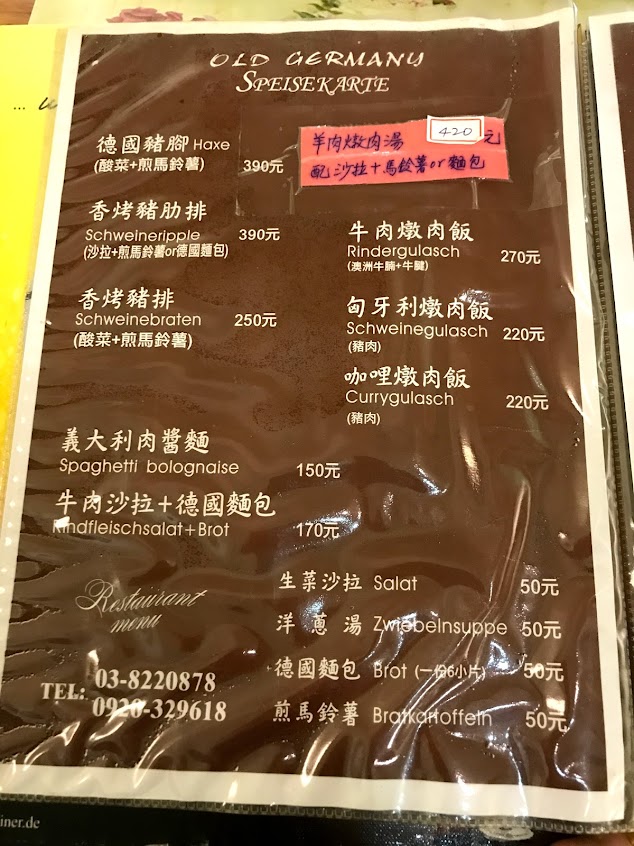 OLD GERMANY
SPEISEKARTE
德國豬腳 Haxe
(酸菜+煎馬鈴薯) 390元
香烤豬肋排
Schweineripple 390元
(沙拉+煎馬鈴薯or德國麵包)
香烤豬排
Schweinebraten 250元
(酸菜+煎馬鈴薯)
羊肉燉肉湯 420元
配沙拉+馬鈴薯or麵包
牛肉燉肉飯
Rindergulasch 270元
(澳洲牛腩+牛腱)
匈牙利燉肉飯
Schweinegulasch 220元
(豬肉)
咖哩燉肉飯
Currygulasch 220元
(豬肉)
義大利肉醬麵
Spaghetti bolognaise 150元
牛肉沙拉+德國麵包
Rindfleischsalat+Brot 170元
生菜沙拉 Salat 50元
洋蔥湯 Zwiebelnsuppe 50元
德國麵包 Brot (一份6小片) 50元
煎馬鈴薯 Bratkartoffeln 50元
Restaurant
menu
TEL: 03-8220878
0920-329618
iner.de